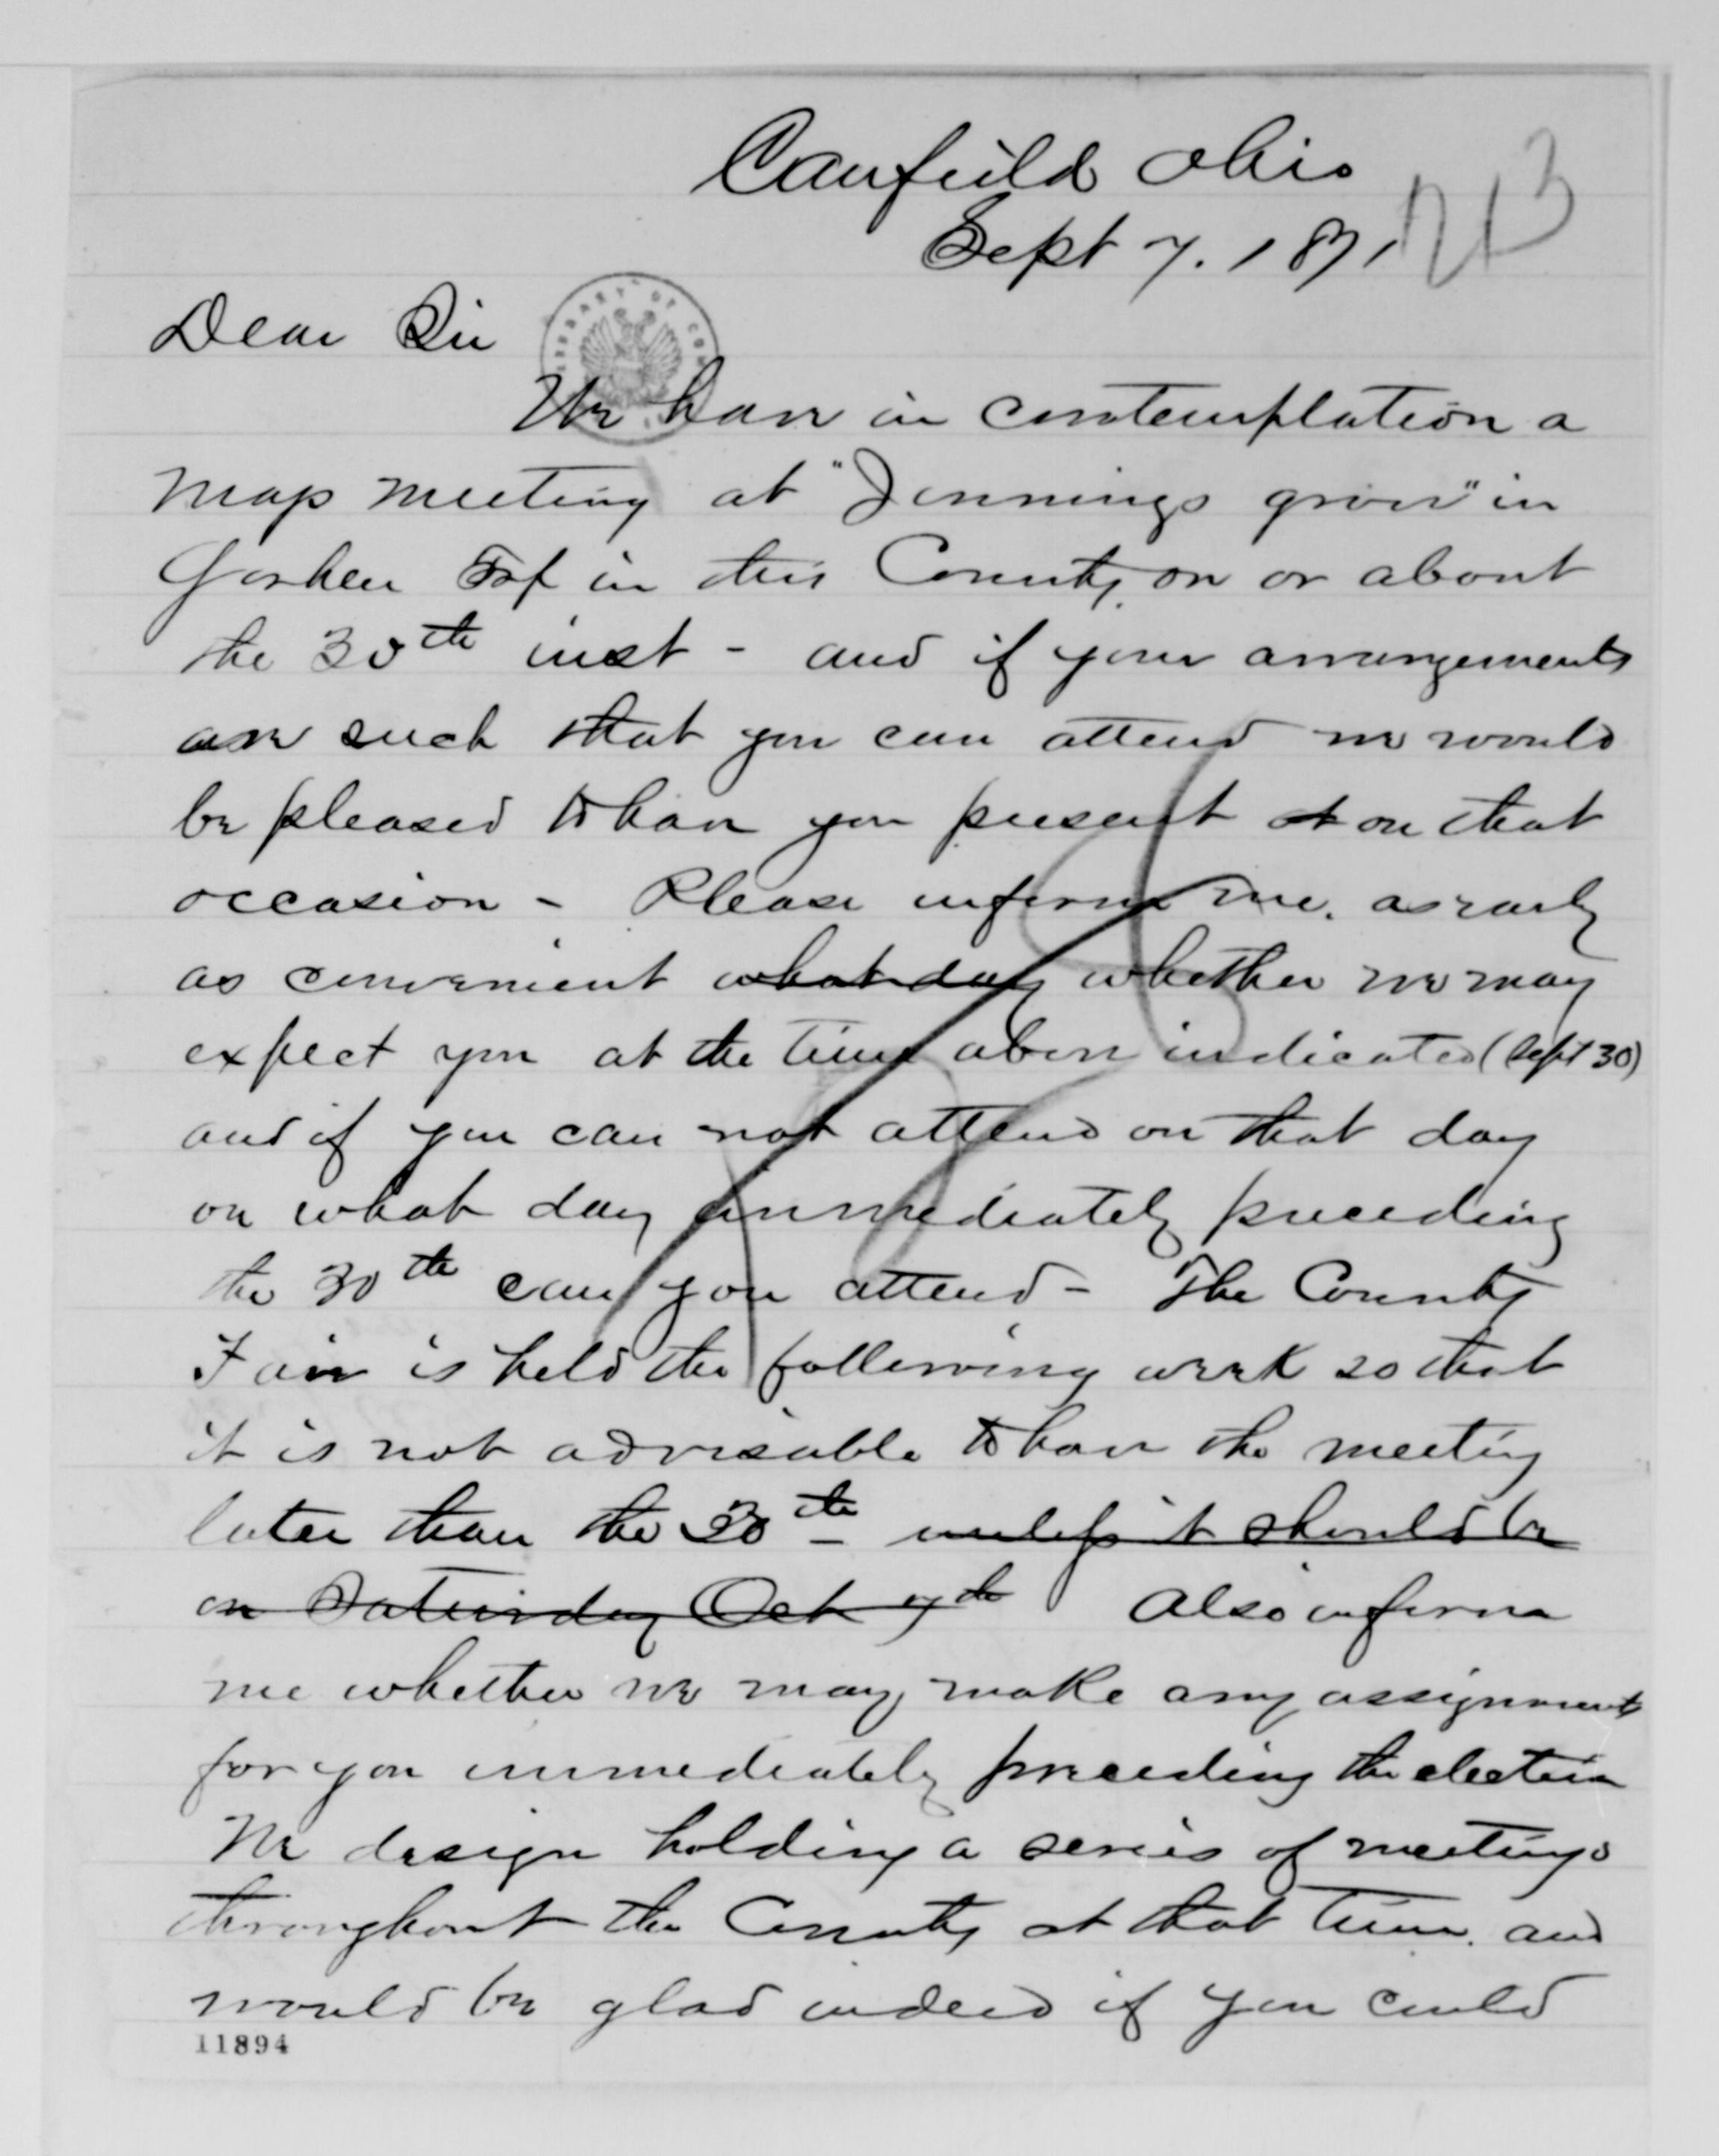 Canfield Ohio
Sept 7. 1871
Dear Sir
We have in contemplation a
mass meeting at "Jennings grove" in
Goshen Tsp in this County, on or about
the 30th inst - and if your arrangements
are such that you can attend we would
be pleased to have you present at on that
occasion - Please inform me, as early
as convenient what day whether we may
expect you at the time above indicated (Sept 30)
and if you can not attend on that day
on what day immediately preceeding
the 30th can you attend - The County
Fair is held the following week so that
it is not advisable to have the meeting
later than the 30th - unless it should be
on Saturday Oct 7th Also inform
me whether we may make any assignments
for you immediately preceeding the election
We design holding a series of meetings
throughout the County at that time. and
would be glad indeed if you could
11894